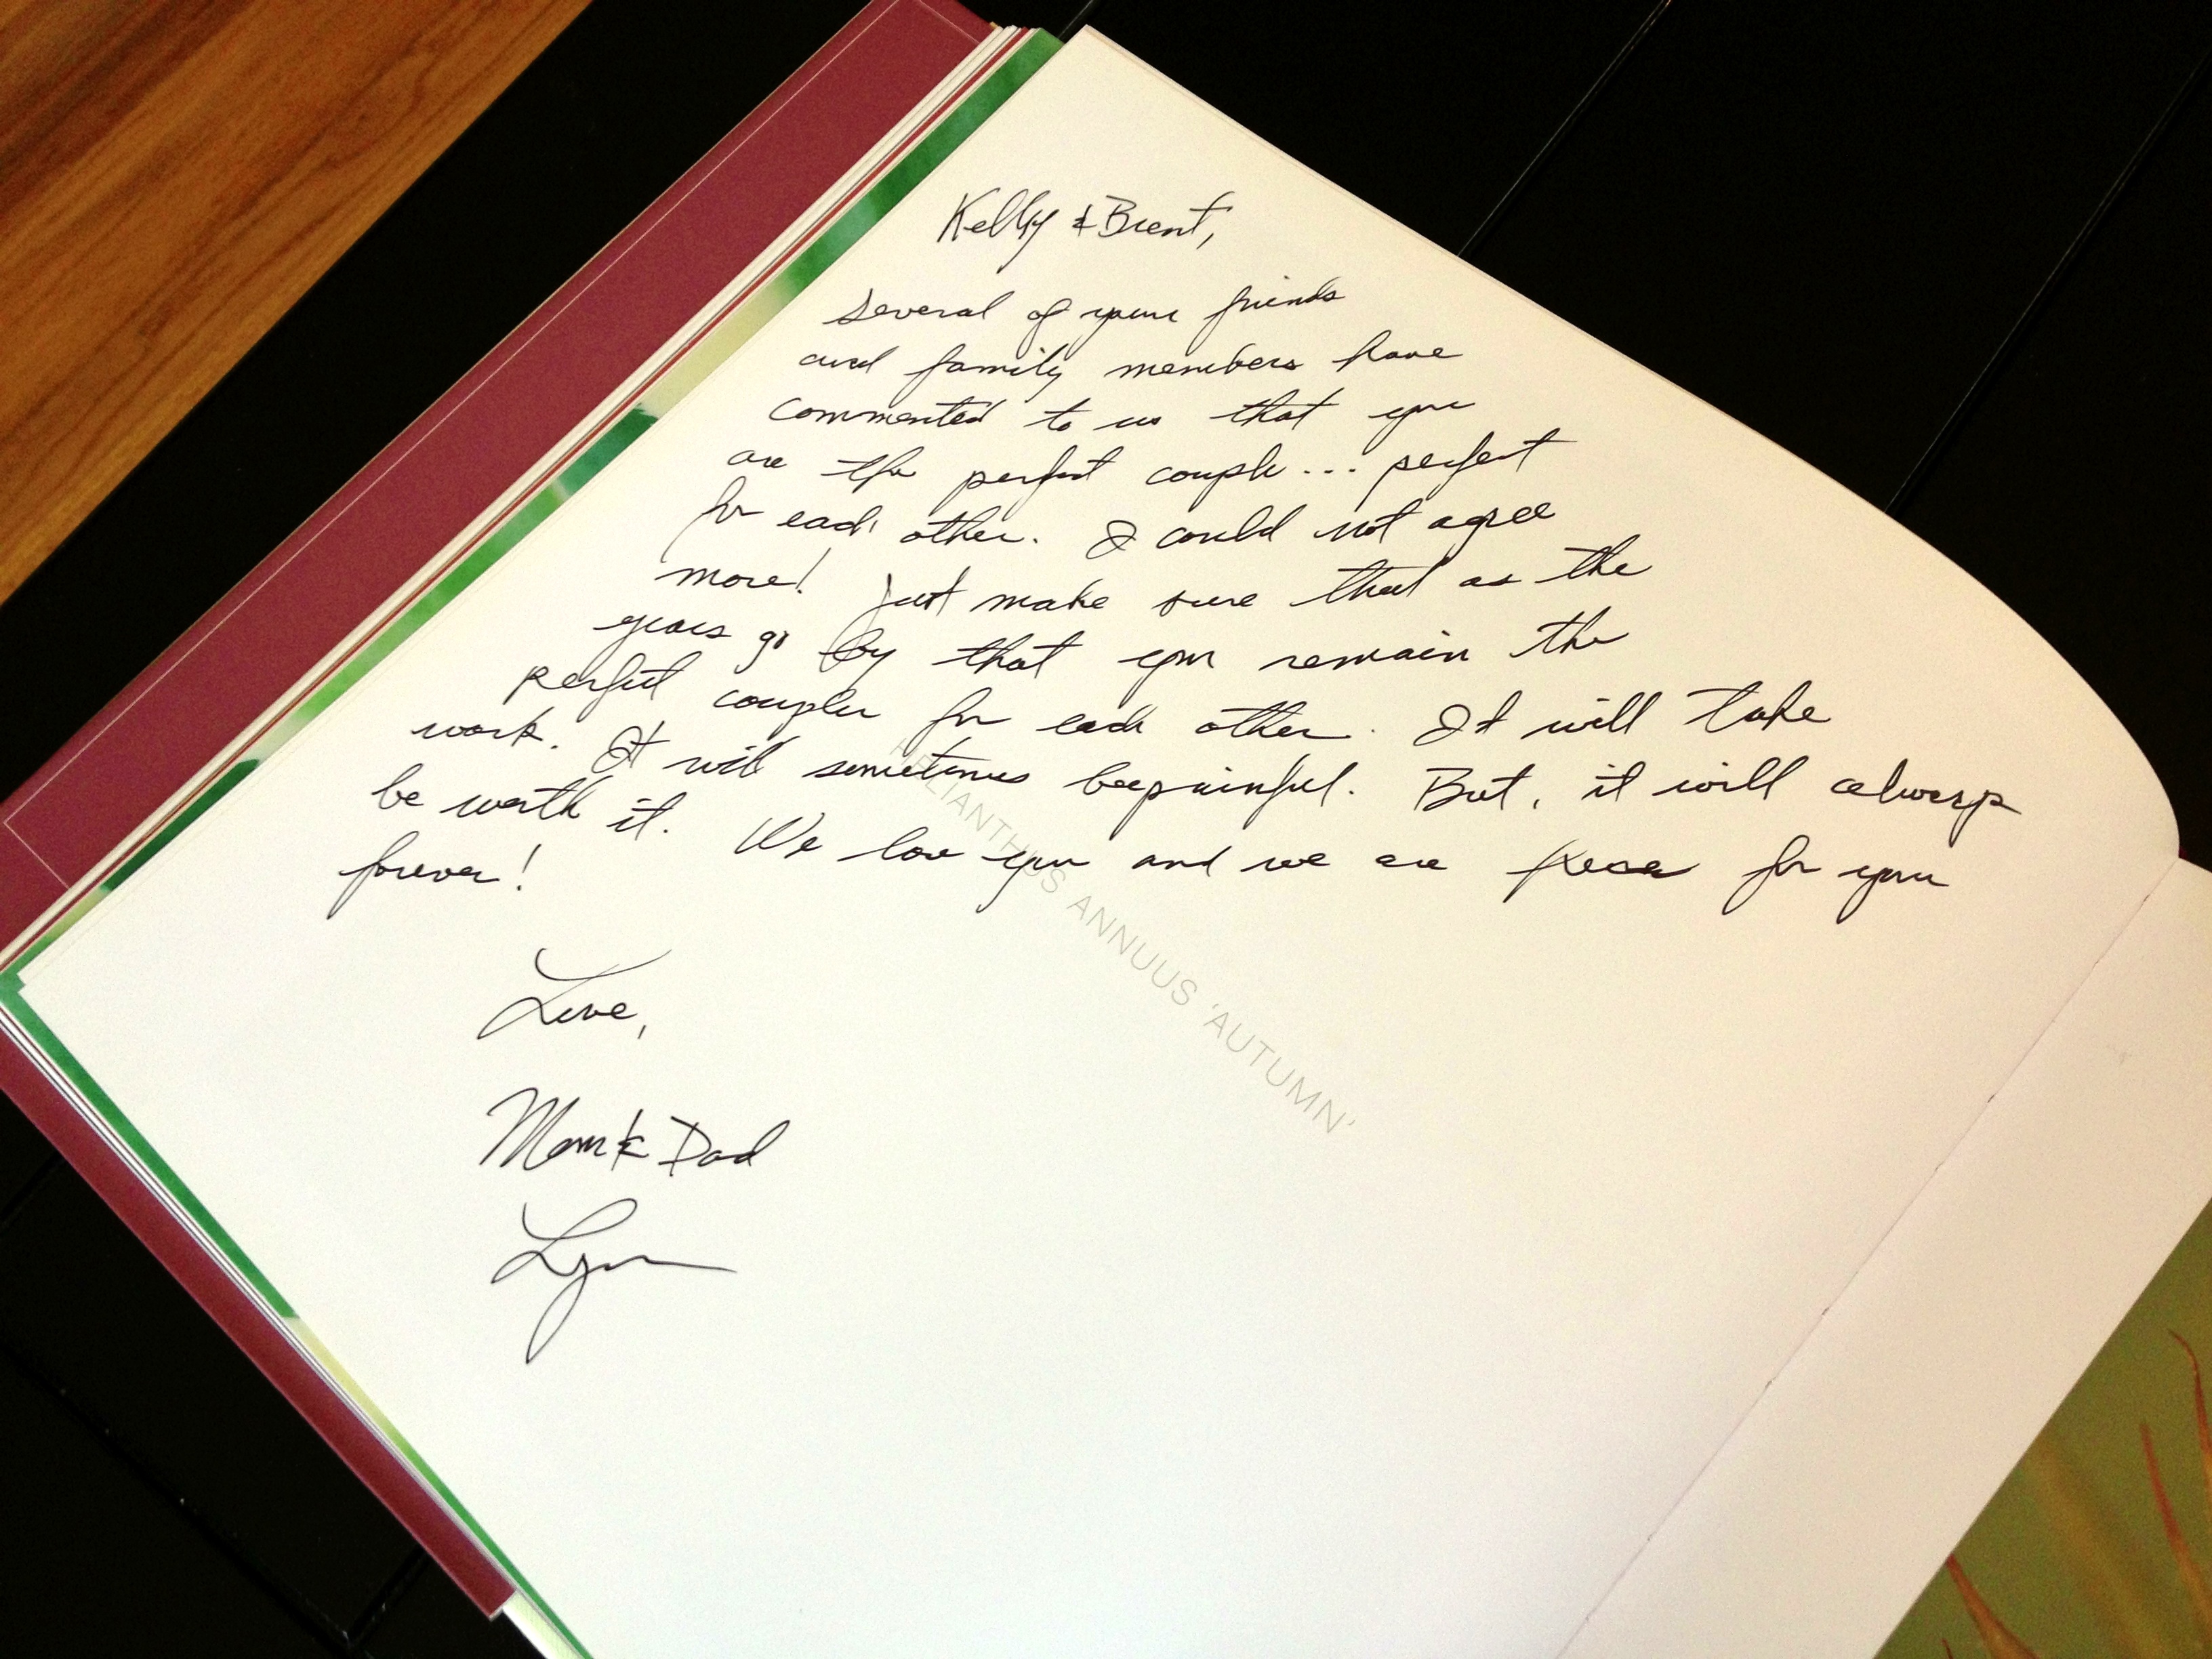 Kelly & Brent,
Several of your friends
and family members have
commented to us that you
are the perfect couple... perfect
for each other. I could not agree
more! Just make sure that as the
years go by that you remain the
perfect couple for each other. It will take
work. It will sometimes be painful. But, it will always
be worth it. We love you and we are here for you
forever!
Love,
Mom & Dad
Lynn
HELIANTHUS ANNUUS 'AUTUMN'